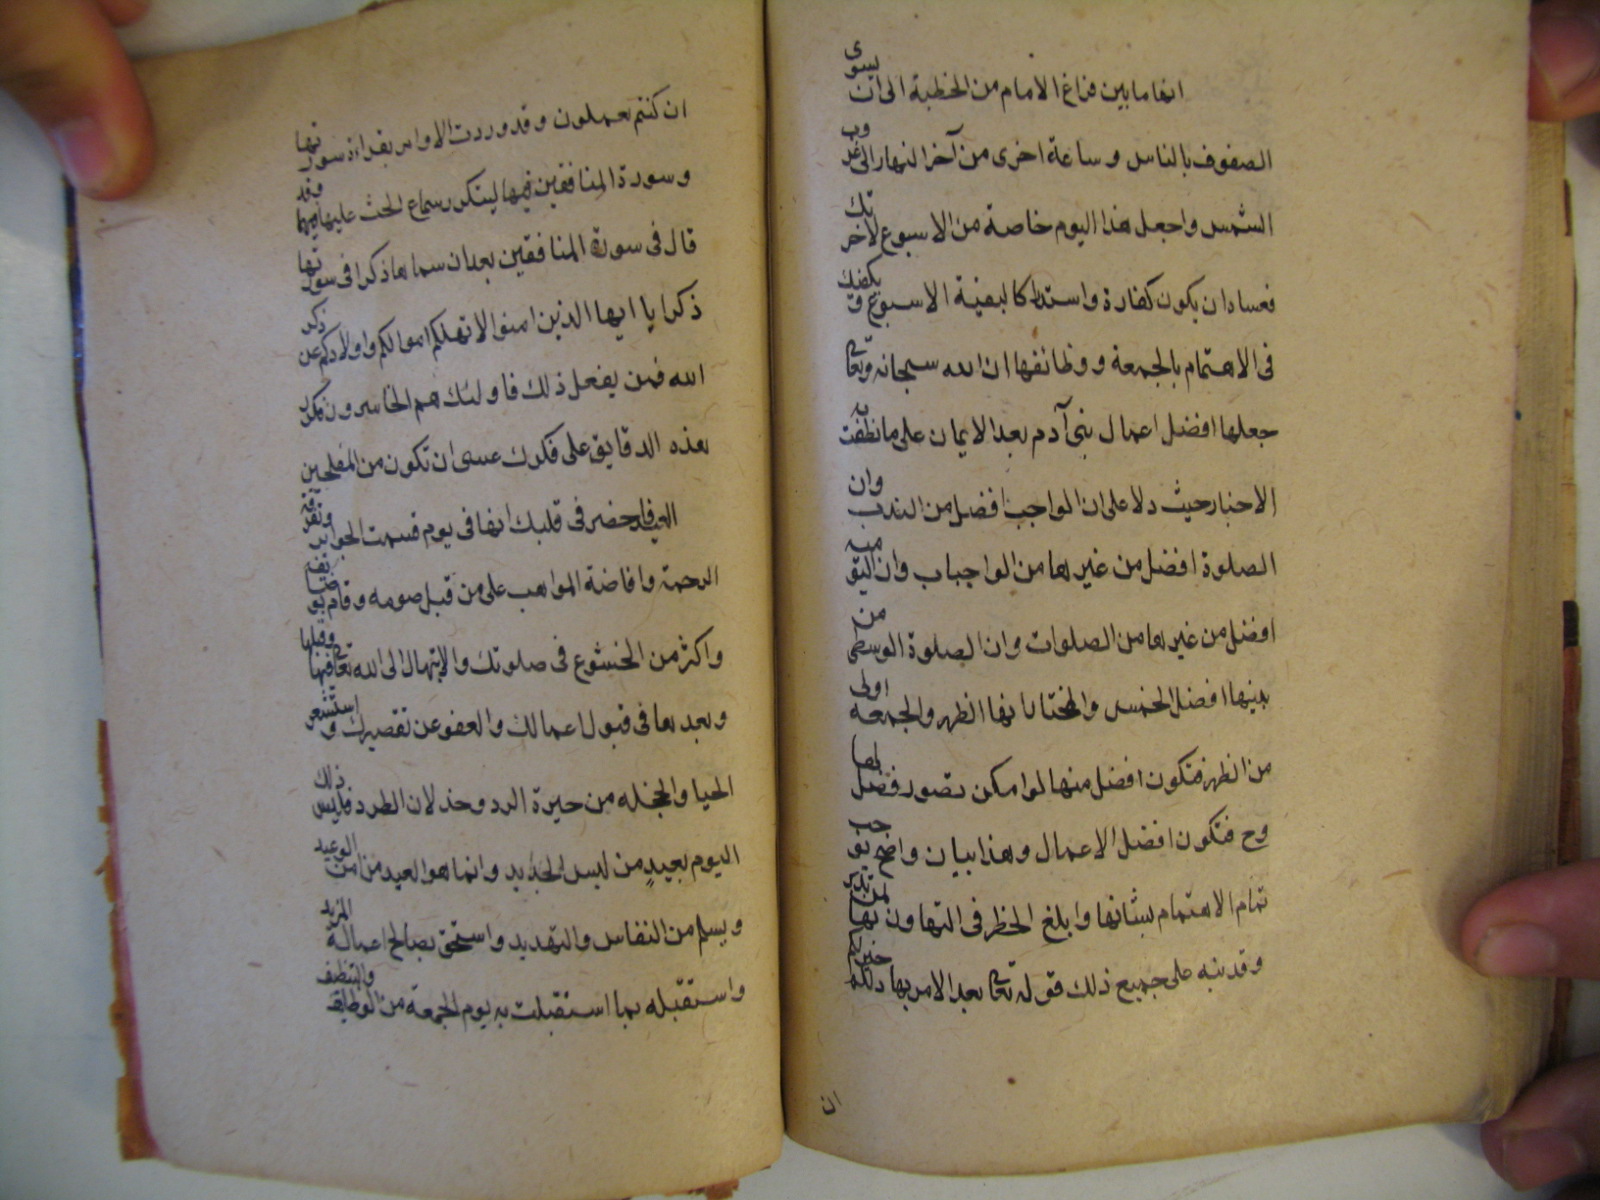 انها ما بين فراغ الامام من الخطبة الى ان يسوى
الصفوف بالناس وساعة اخرى من آخر النهار الى غروب
الشمس واجعل هذا اليوم خاصة من الاسبوع لآخرتك
فعساه ان يكون كفارة واستدراكا لبقية الاسبوع ويكفيك
فى الاهتمام بالجمعة ووظائفها ان الله سبحانه وتعالى
جعلها افضل اعمال بنى آدم بعد الايمان على ما نطقت به
الاخبار حيث دلا على ان الواجب افضل من الندب وان
الصلوة افضل من غيرها من الواجبات وان اليومية
افضل من غيرها من الصلوات وان الصلوة الوسطى من
بينها افضل الخمس والمختار انها الظهر والجمعه اولى
من الظهر فتكون افضل منها لو امكن تصور فضل لها
وح فتكون افضل الاعمال وهذا بيان واضح يوجب
تمام الاهتمام بشانها وابلغ الحظر فى التهاون بها لمن تدبر
وقد نبه على جميع ذلك قوله تعالى بعد الامر بها ذلكم خير لكم
ان
ان كنتم تعملون وقد وردت الاوامر بقراءة سورتها
وسورة المنافقين فيها ليتكرر سماع الحث عليها فيهما وقد
قال فى سورة المنافقين بعد ان سماها ذكرا فى سورتها
ذكرا يا ايها الذين امنوا لا تهلكم اموالكم واولادكم عن ذكر
الله فمن يفعل ذلك فاولئك هم الخاسرون فكرر
هذه الدقايق على فكرك عسى ان تكون من المفلحين
العيد فاحضر فى قلبك انها فى يوم قسمت الجوايز وتفرقة
الرحمة وافاضة المواهب على من قبل صومه وقام بوظايفه
واكثر من الخشوع فى صلوتك والابتهال الى الله تعالى فيها وقبلها
وبعدها فى قبول اعمالك والعفو عن تقصيرك واستشعر
الحيا والخجله من حيرة الرد وخذلان الطرد فليس ذلك
اليوم بعيدٍ من لبس الجديد وانما هو العيد من امن الوعيد
ويسلم من النقاس والتهديد واستحق بصالح اعماله المزيد
واستقبله بما استقبلت به يوم الجمعة من الوظايف والتنظيف